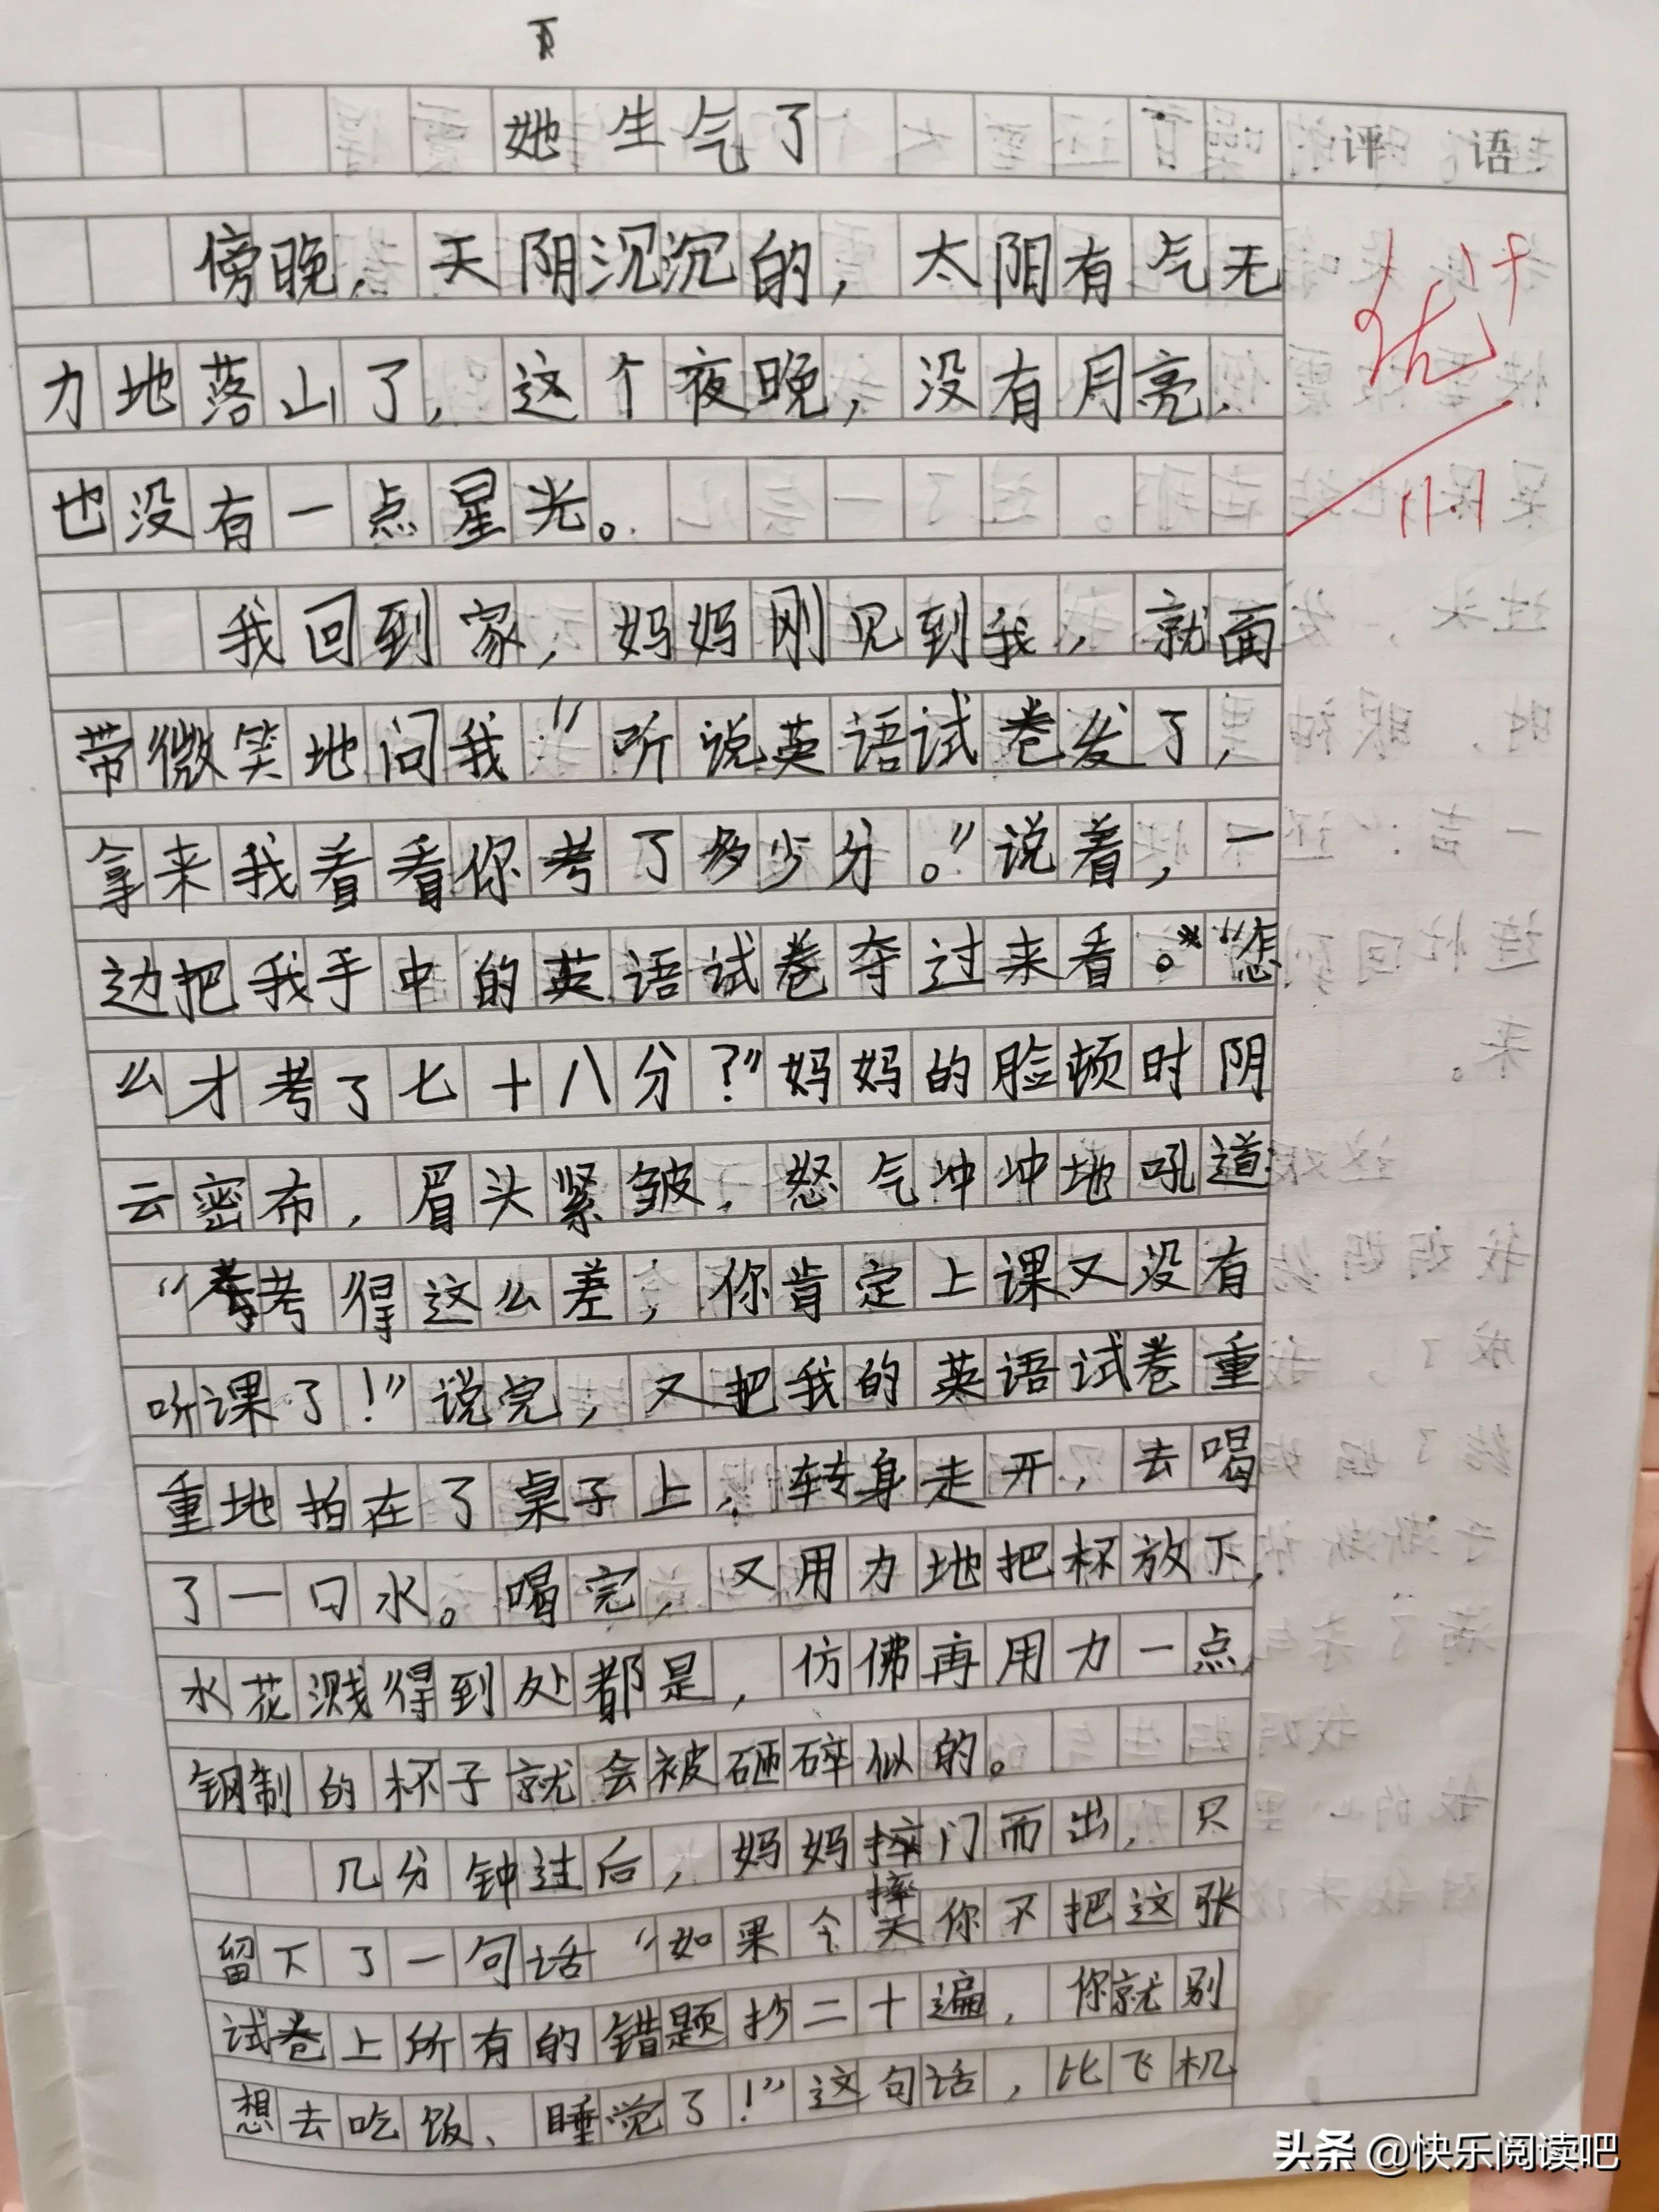 她生气了
评语
傍晚，天阴沉沉的，太阳有气无
力地落山了，这个夜晚，没有月亮，
也没有一点星光。
我回到家，妈妈刚见到我，就面
带微笑地问我“听说英语试卷发了，
拿来我看看你考了多少分。”说着，一
边把我手中的英语试卷夺过来看。“怎
么才考了七十八分？”妈妈的脸顿时阴
云密布，眉头紧皱，怒气冲冲地吼道
“考得这么差，你肯定上课又没有
听课了！”说完，又把我的英语试卷重
重地拍在了桌子上，转身走开，去喝
了一口水。喝完，又用力地把杯放下，
水花溅得到处都是，仿佛再用力一点，
钢制的杯子就会被砸碎似的。
几分钟过后，妈妈摔门而出，只
摔
留下了一句话“如果今天你不把这张
试卷上所有的错题抄二十遍，你就别
想去吃饭、睡觉了！”这句话，比飞机
优+
11.1
头条 @快乐阅读吧